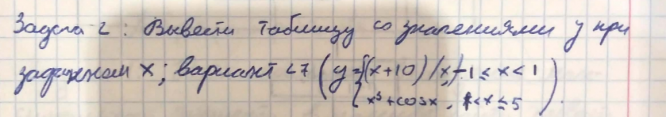 Задача 2: Вывести таблицу со значениями y при
заданном x; вариант 27 (y={(x+10)/x, -1≤x<1
x³+cosx, 1<x≤5).